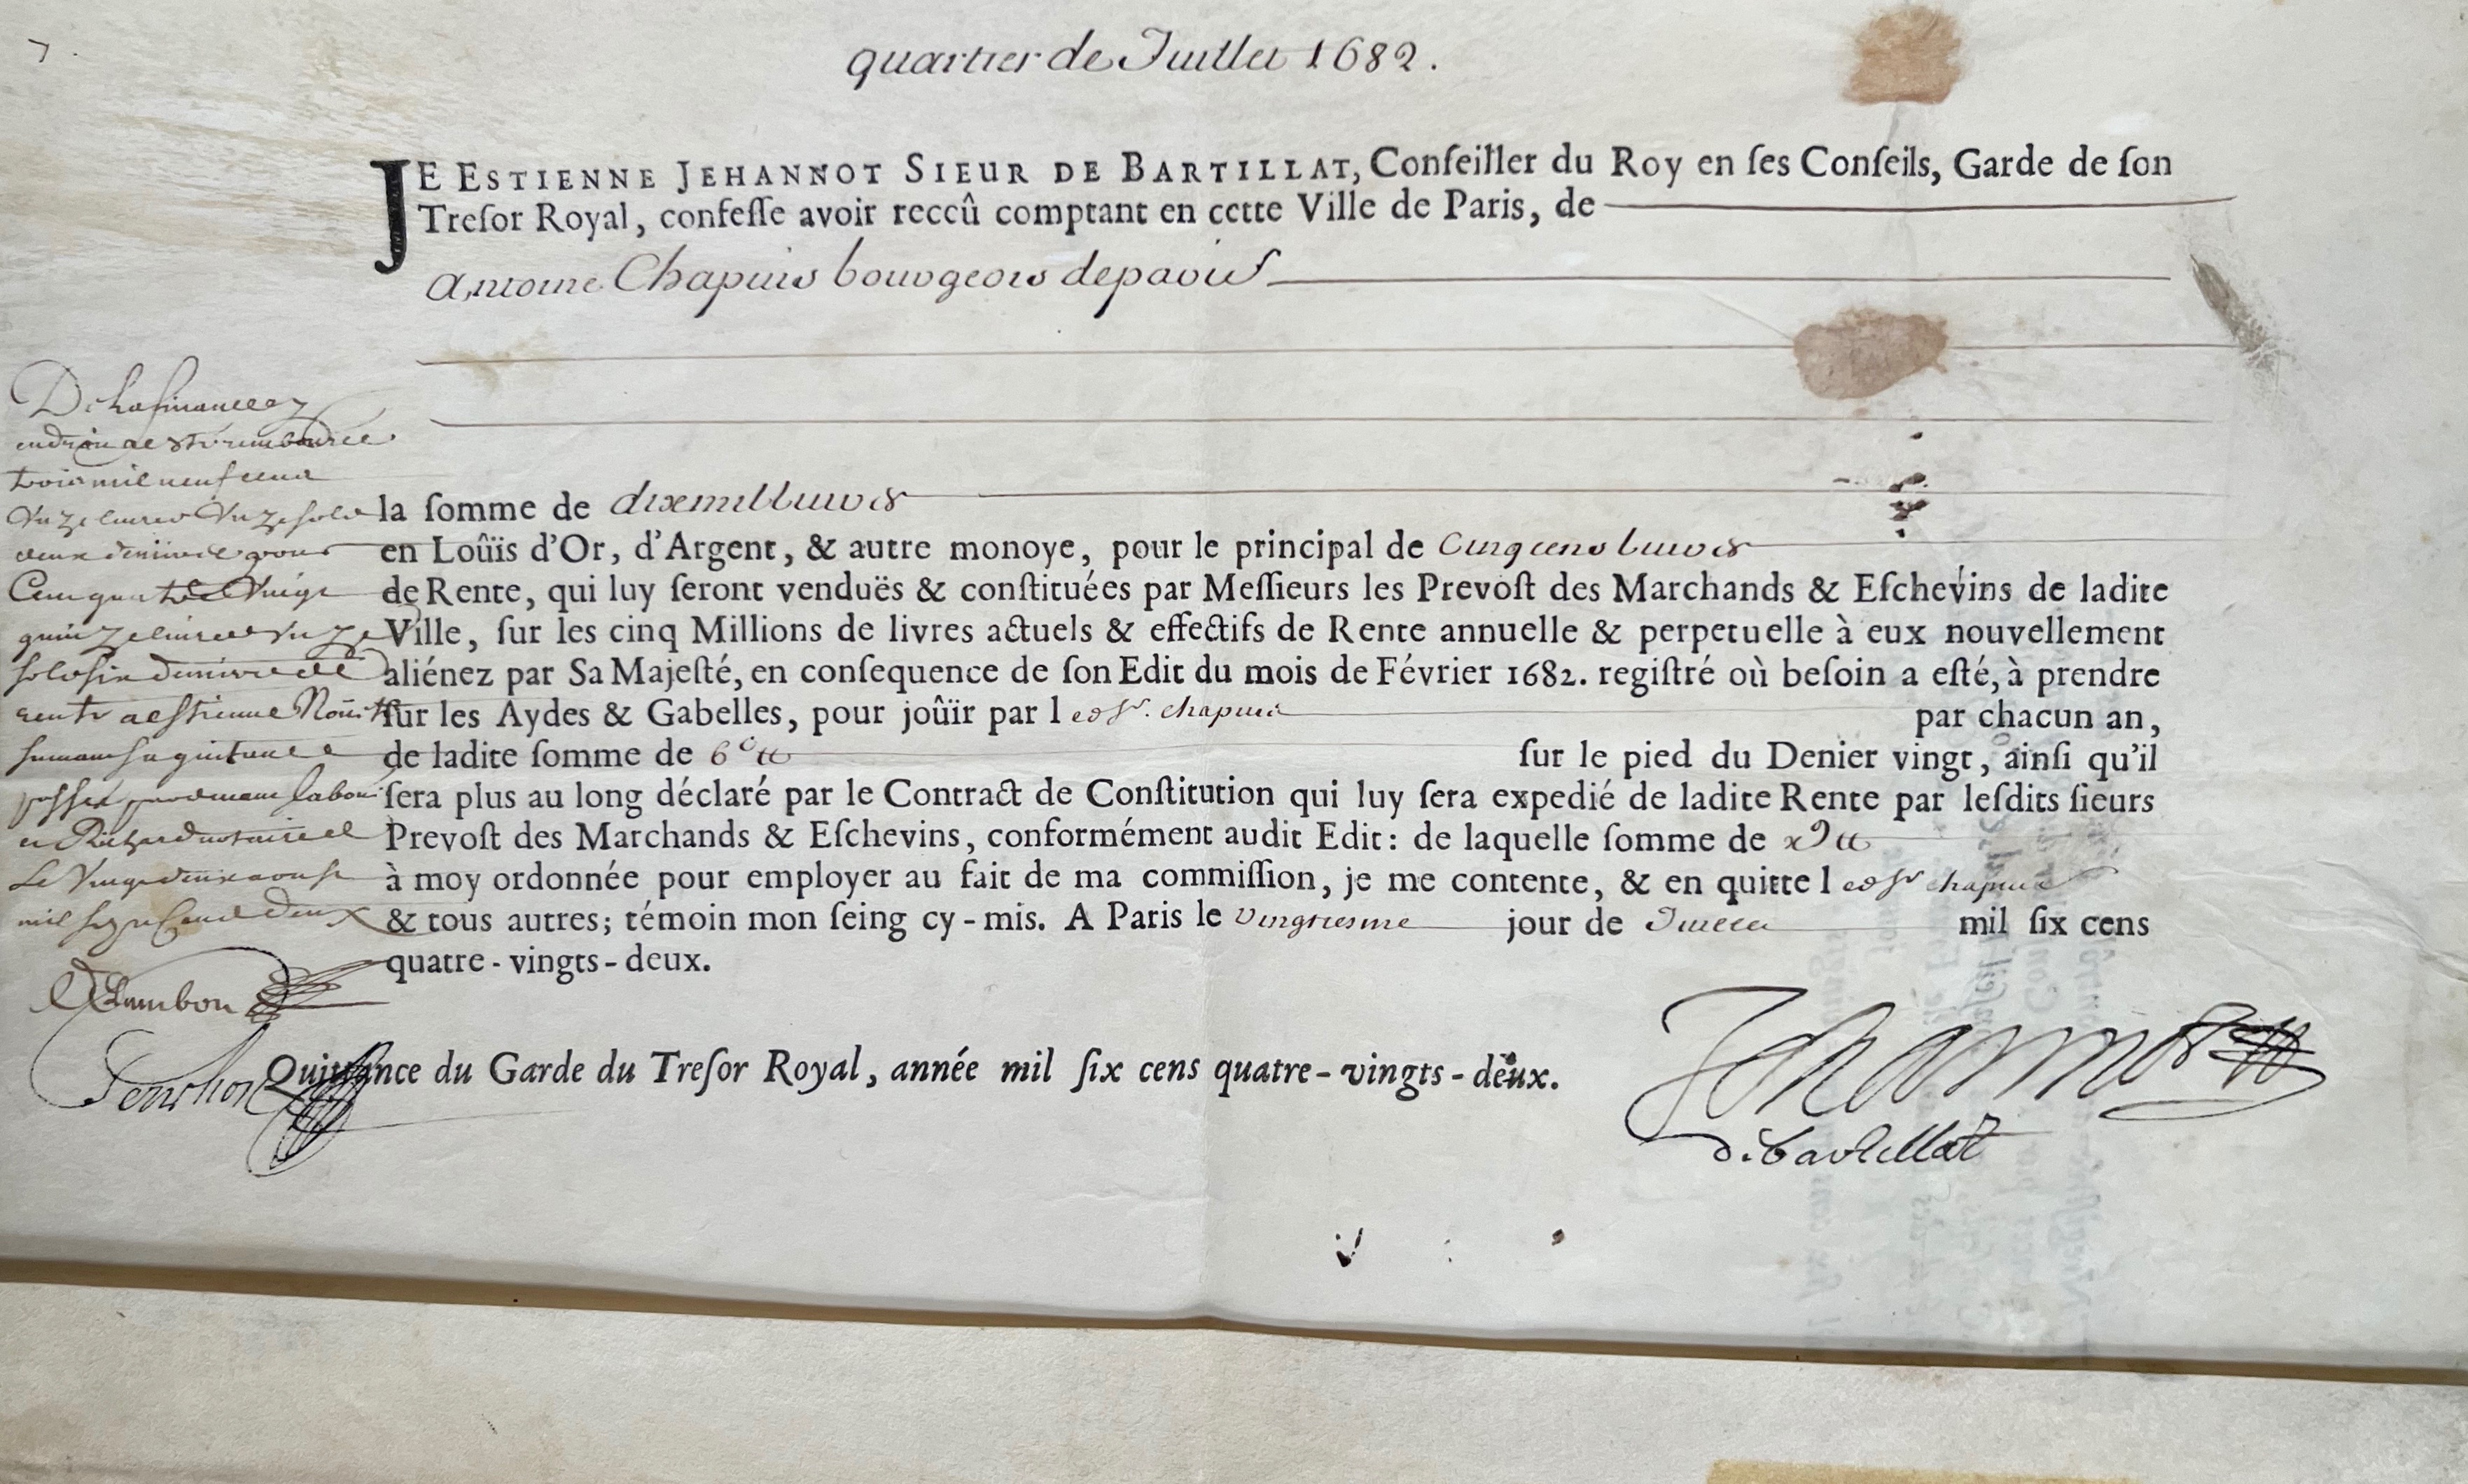 quartier de Juillet 1682.
JE ESTIENNE JEHANNOT SIEUR DE BARTILLAT, Conſeiller du Roy en ſes Conſeils, Garde de ſon
Treſor Royal, confeſſe avoir receû comptant en cette Ville de Paris, de
Antoine Chapuis bourgeois de paris
la ſomme de dix mil livres
en Loüis d'Or, d'Argent, & autre monoye, pour le principal de Cinq cens livres
de Rente, qui luy ſeront venduës & conſtituées par Meſſieurs les Prevoſt des Marchands & Eſchevins de ladite
Ville, ſur les cinq Millions de livres actuels & effectifs de Rente annuelle & perpetuelle à eux nouvellement
aliénez par Sa Majeſté, en conſequence de ſon Edit du mois de Février 1682. regiſtré où beſoin a eſté, à prendre
ſur les Aydes & Gabelles, pour joûïr par l edSr. chapuis par chacun an,
de ladite ſomme de ſur le pied du Denier vingt, ainſi qu'il
ſera plus au long déclaré par le Contract de Conſtitution qui luy ſera expedié de ladite Rente par leſdits ſieurs
Prevoſt des Marchands & Eſchevins, conformément audit Edit: de laquelle ſomme de
à moy ordonnée pour employer au fait de ma commiſſion, je me contente, & en quitte l edSr chapuis
& tous autres; témoin mon ſeing cy-mis. A Paris le vingtiesme jour de Juillet mil ſix cens
quatre-vingts-deux.
Quittance du Garde du Treſor Royal, année mil ſix cens quatre-vingts-deux.
Jehannot
de bartillat
De La finance
trois mil neuf cent
unze livres unze sols
deux deniers pour
Cent quatre Vingt
quinze livres unze
sols six deniers de
rente a estienne
suivant sa quittance
Le Vingt deux aoust
mil sept Cent deux